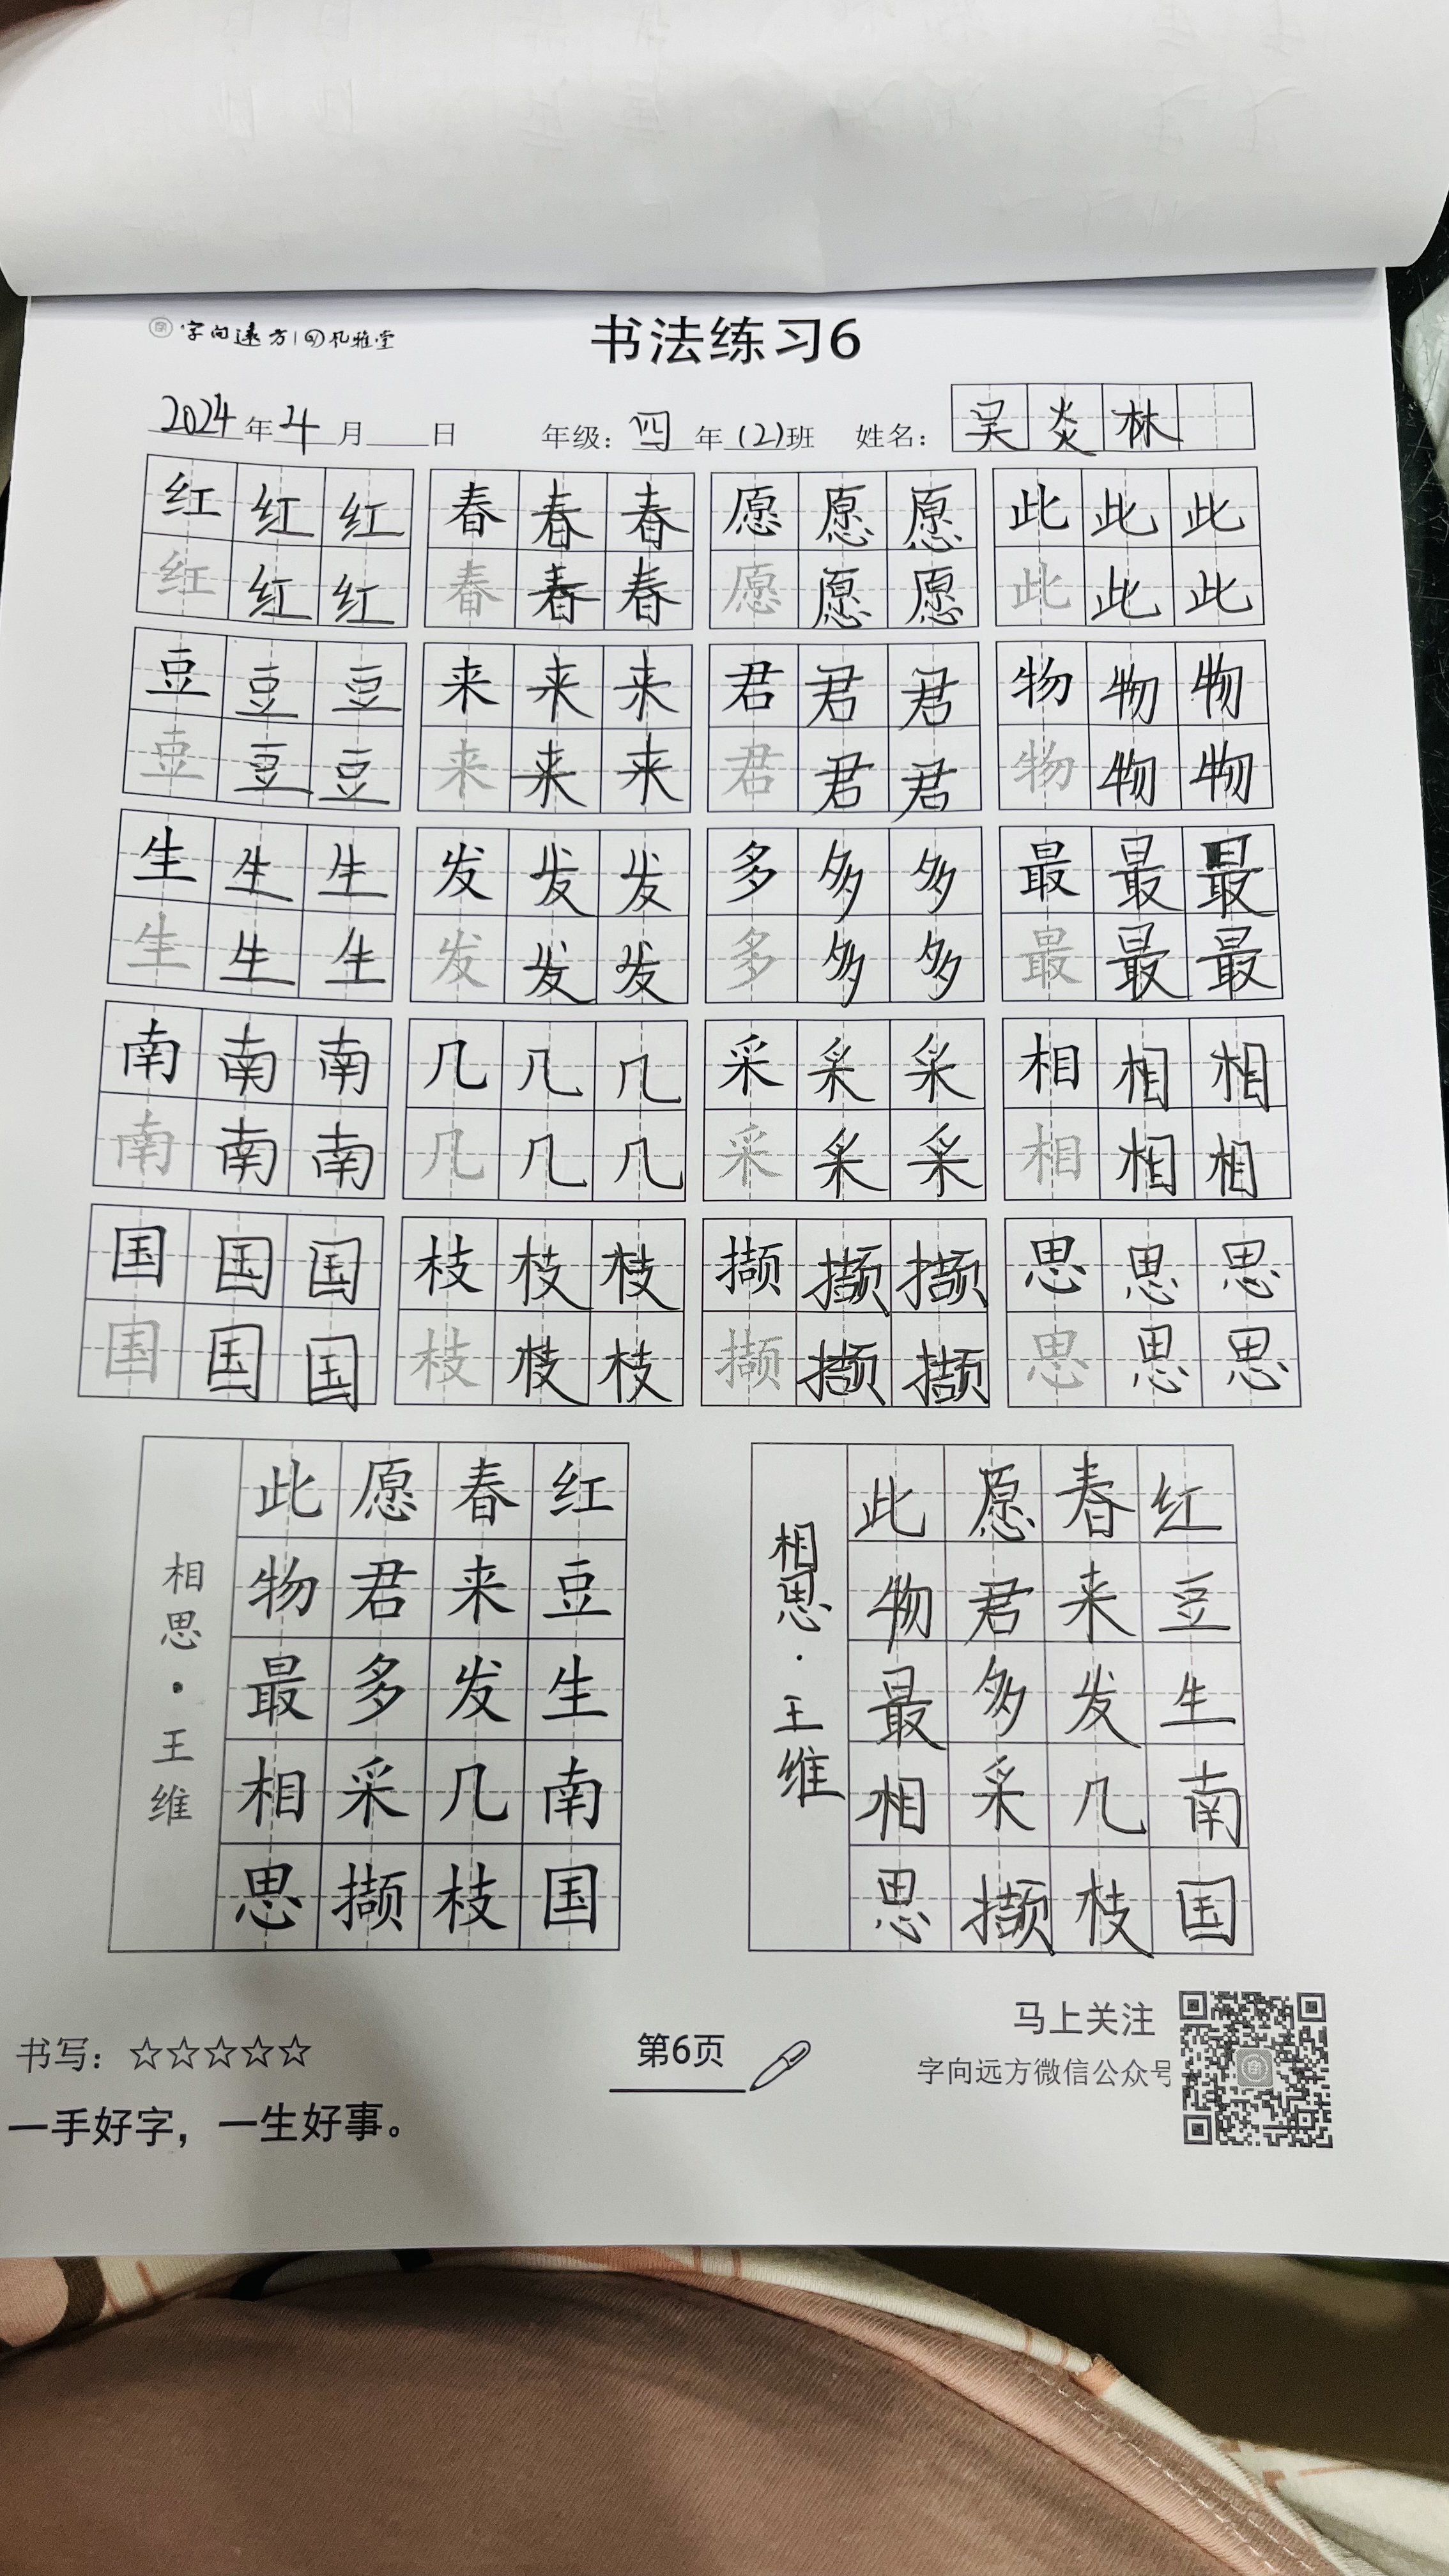 字向远方 孔雅堂
书法练习6
2024年4月 日 年级：四年(2)班 姓名：吴炎林
红红红 春春春 愿愿愿 此此此
红红红 春春春 愿愿愿 此此此
豆豆豆 来来来 君君君 物物物
豆豆豆 来来来 君君君 物物物
生生生 发发发 多多多 最最最
生生生 发发发 多多多 最最最
南南南 几几几 采采采 相相相
南南南 几几几 采采采 相相相
国国国 枝枝枝 撷撷撷 思思思
国国国 枝枝枝 撷撷撷 思思思
红豆生南国
春来发几枝
愿君多采撷
此物最相思
相思·王维
红豆生南国
春来发几枝
愿君多采撷
此物最相思
相思·王维
书写：☆☆☆☆☆
一手好字，一生好事。
第6页
马上关注
字向远方微信公众号